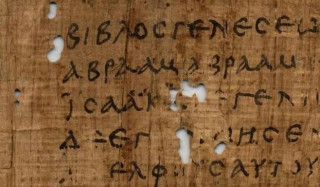 ΒΙΒΛΟϹΓΕΝΕϹΕΩ
ΑΒΡΑΑΜΑΒΡΑΑΜ
ΙϹΑΑΚ ΓΕΝ
Δ ΕΓ ΗϹΕ
ΕΛΦ ϹΑΥΤΟΥ